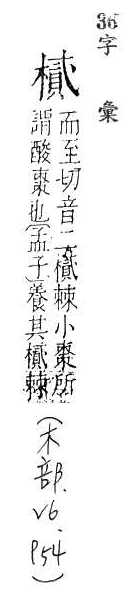 36字 彙
樲
而至切音二樲棘小棗所
謂酸棗也(孟子)養其樲棘
(木部. V6. P54)